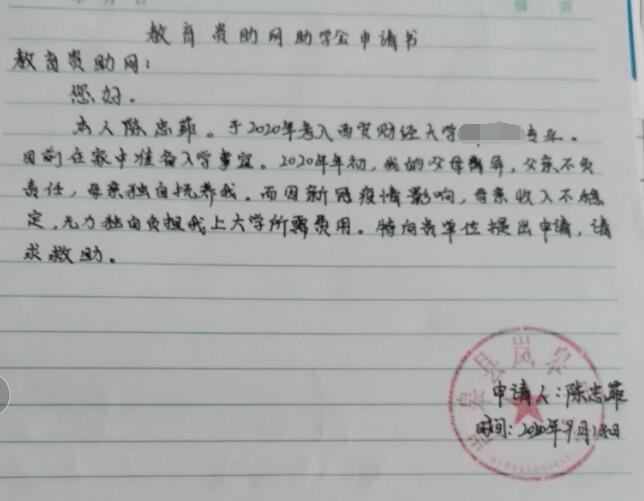 教育资助网助学金申请书
教育资助网:
您好.
本人陈忠菲。于2020年考入西安财经大学 专业.
目前在家中准备入学事宜。2020年年初,我的父母离异,父亲不负
责任,母亲独自抚养我.而因新冠疫情影响,母亲收入不稳
定,无力独自负担我上大学所需费用。特向贵单位提出申请,请
求救助。
县岚皋
申请人:陈忠菲
时间:2020年9月18日